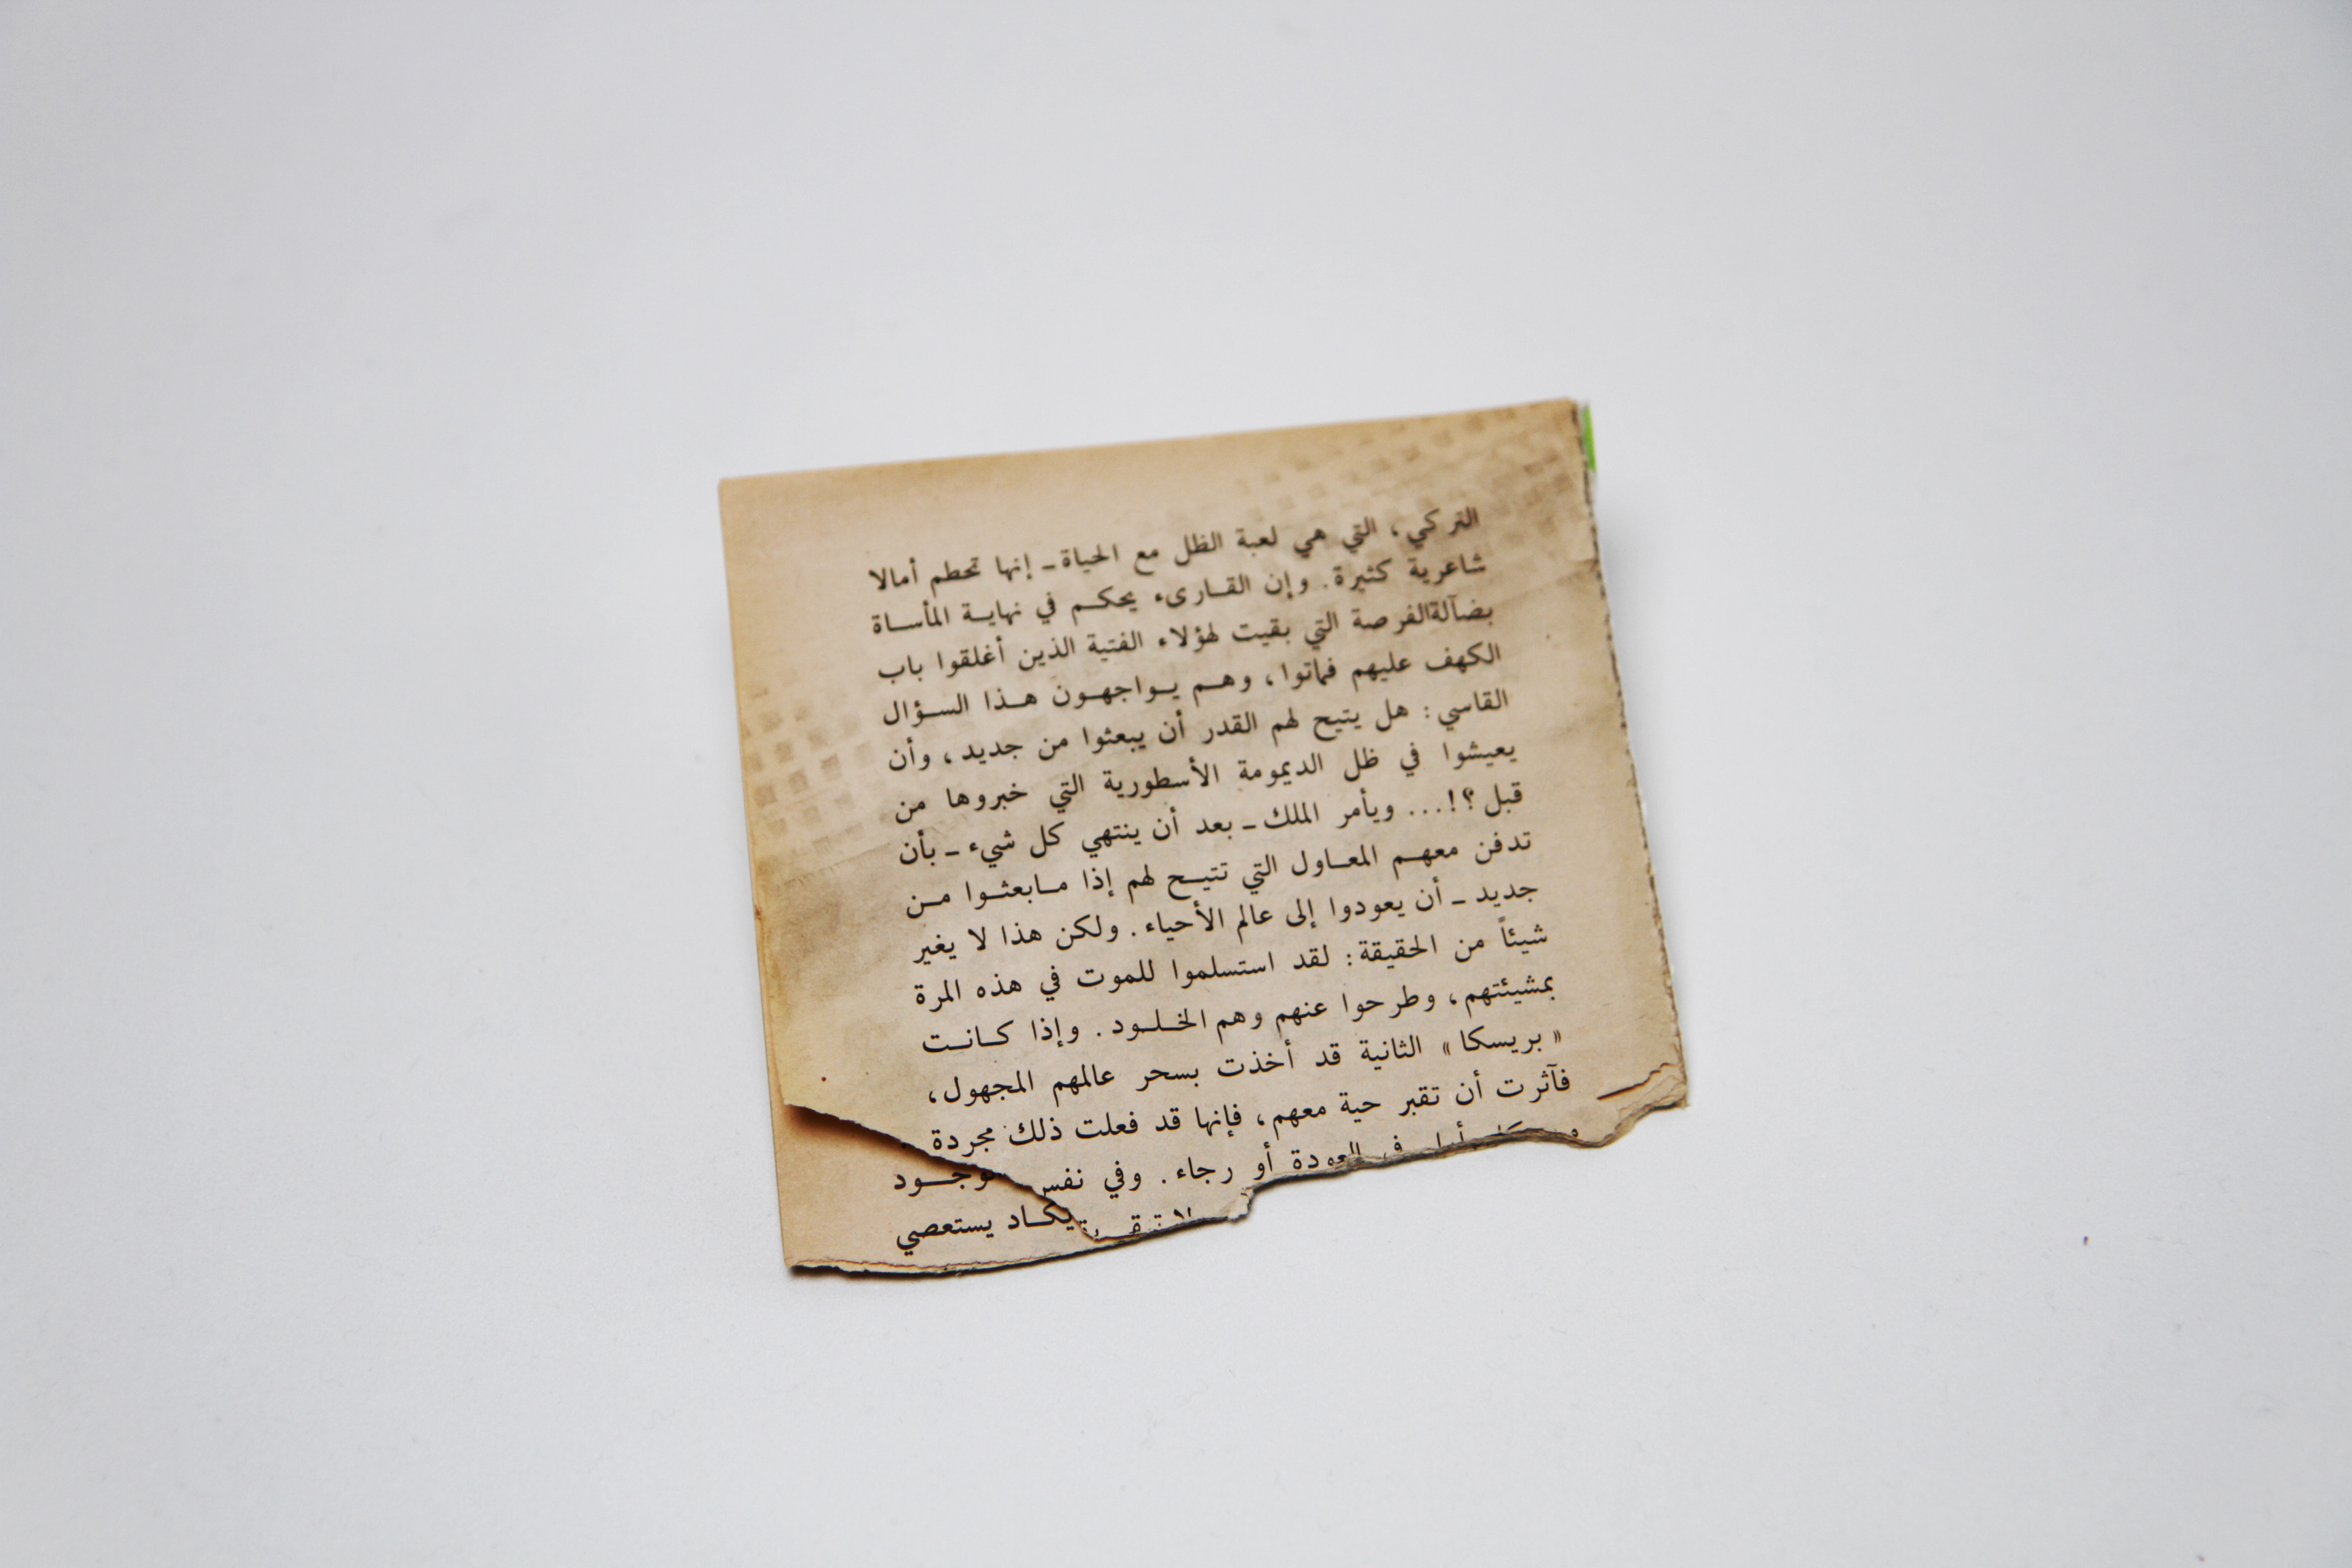 التركي، التي هي لعبة الظل مع الحياة ـ إنها تحطم أمالا
شاعرية كثيرة. وإن القـارىء يحكـم في نهايـة المأسـاة
بضآلة الفرصة التي بقيت لهؤلاء الفتية الذين أغلقوا باب
الكهف عليهم فماتوا، وهـم يـواجهـون هـذا السـؤال
القاسي: هل يتيح لهم القدر أن يبعثوا من جديد، وأن
يعيشوا في ظل الديمومة الأسطورية التي خبروها من
قبل؟!... ويأمر الملك ـ بعد أن ينتهي كل شيء ـ بأن
تدفن معهـم المعـاول التي تتيـح لهم إذا مـابعثـوا مـن
جديد ـ أن يعودوا إلى عالم الأحياء. ولكن هذا لا يغير
شيئاً من الحقيقة: لقد استسلموا للموت في هذه المرة
بمشيئتهم، وطرحوا عنهم وهم الخـلـود. وإذا كـانـت
« بريسكا» الثانية قد أخذت بسحر عالمهم المجهول،
فآثرت أن تقبر حية معهم، فإنها قد فعلت ذلك مجردة
في العودة أو رجاء. وفي نفس
يكـاد يستعصي